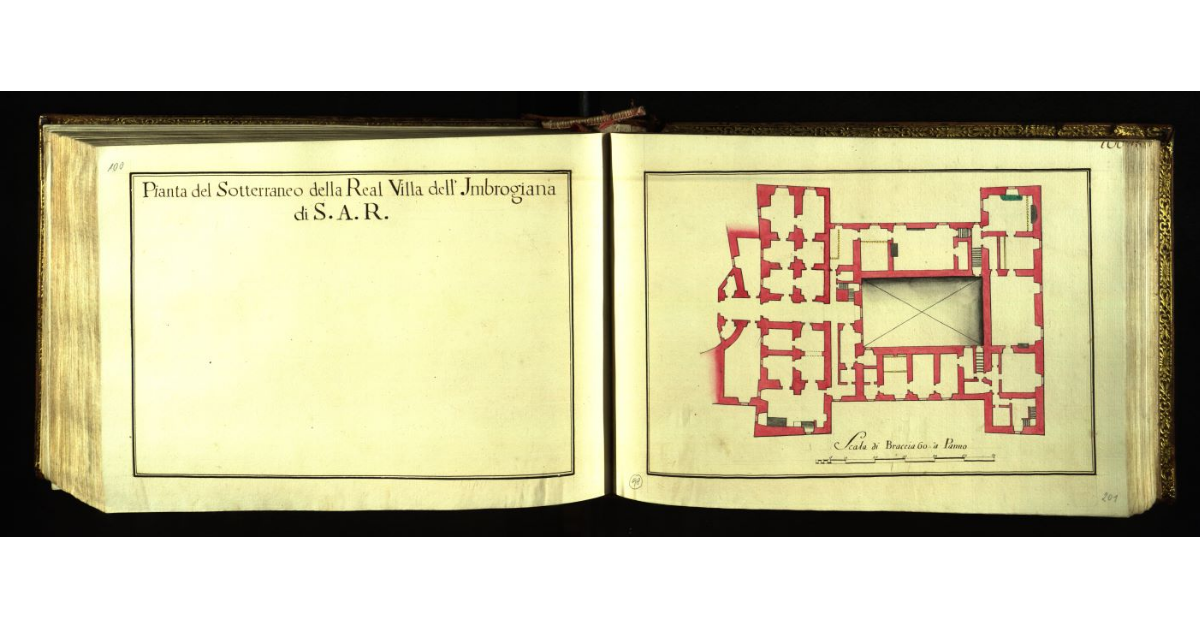 100
Pianta del Sotterraneo della Real Villa dell' Jmbrogiana
di S. A. R.
Scala di Braccia 60. a Panno
201